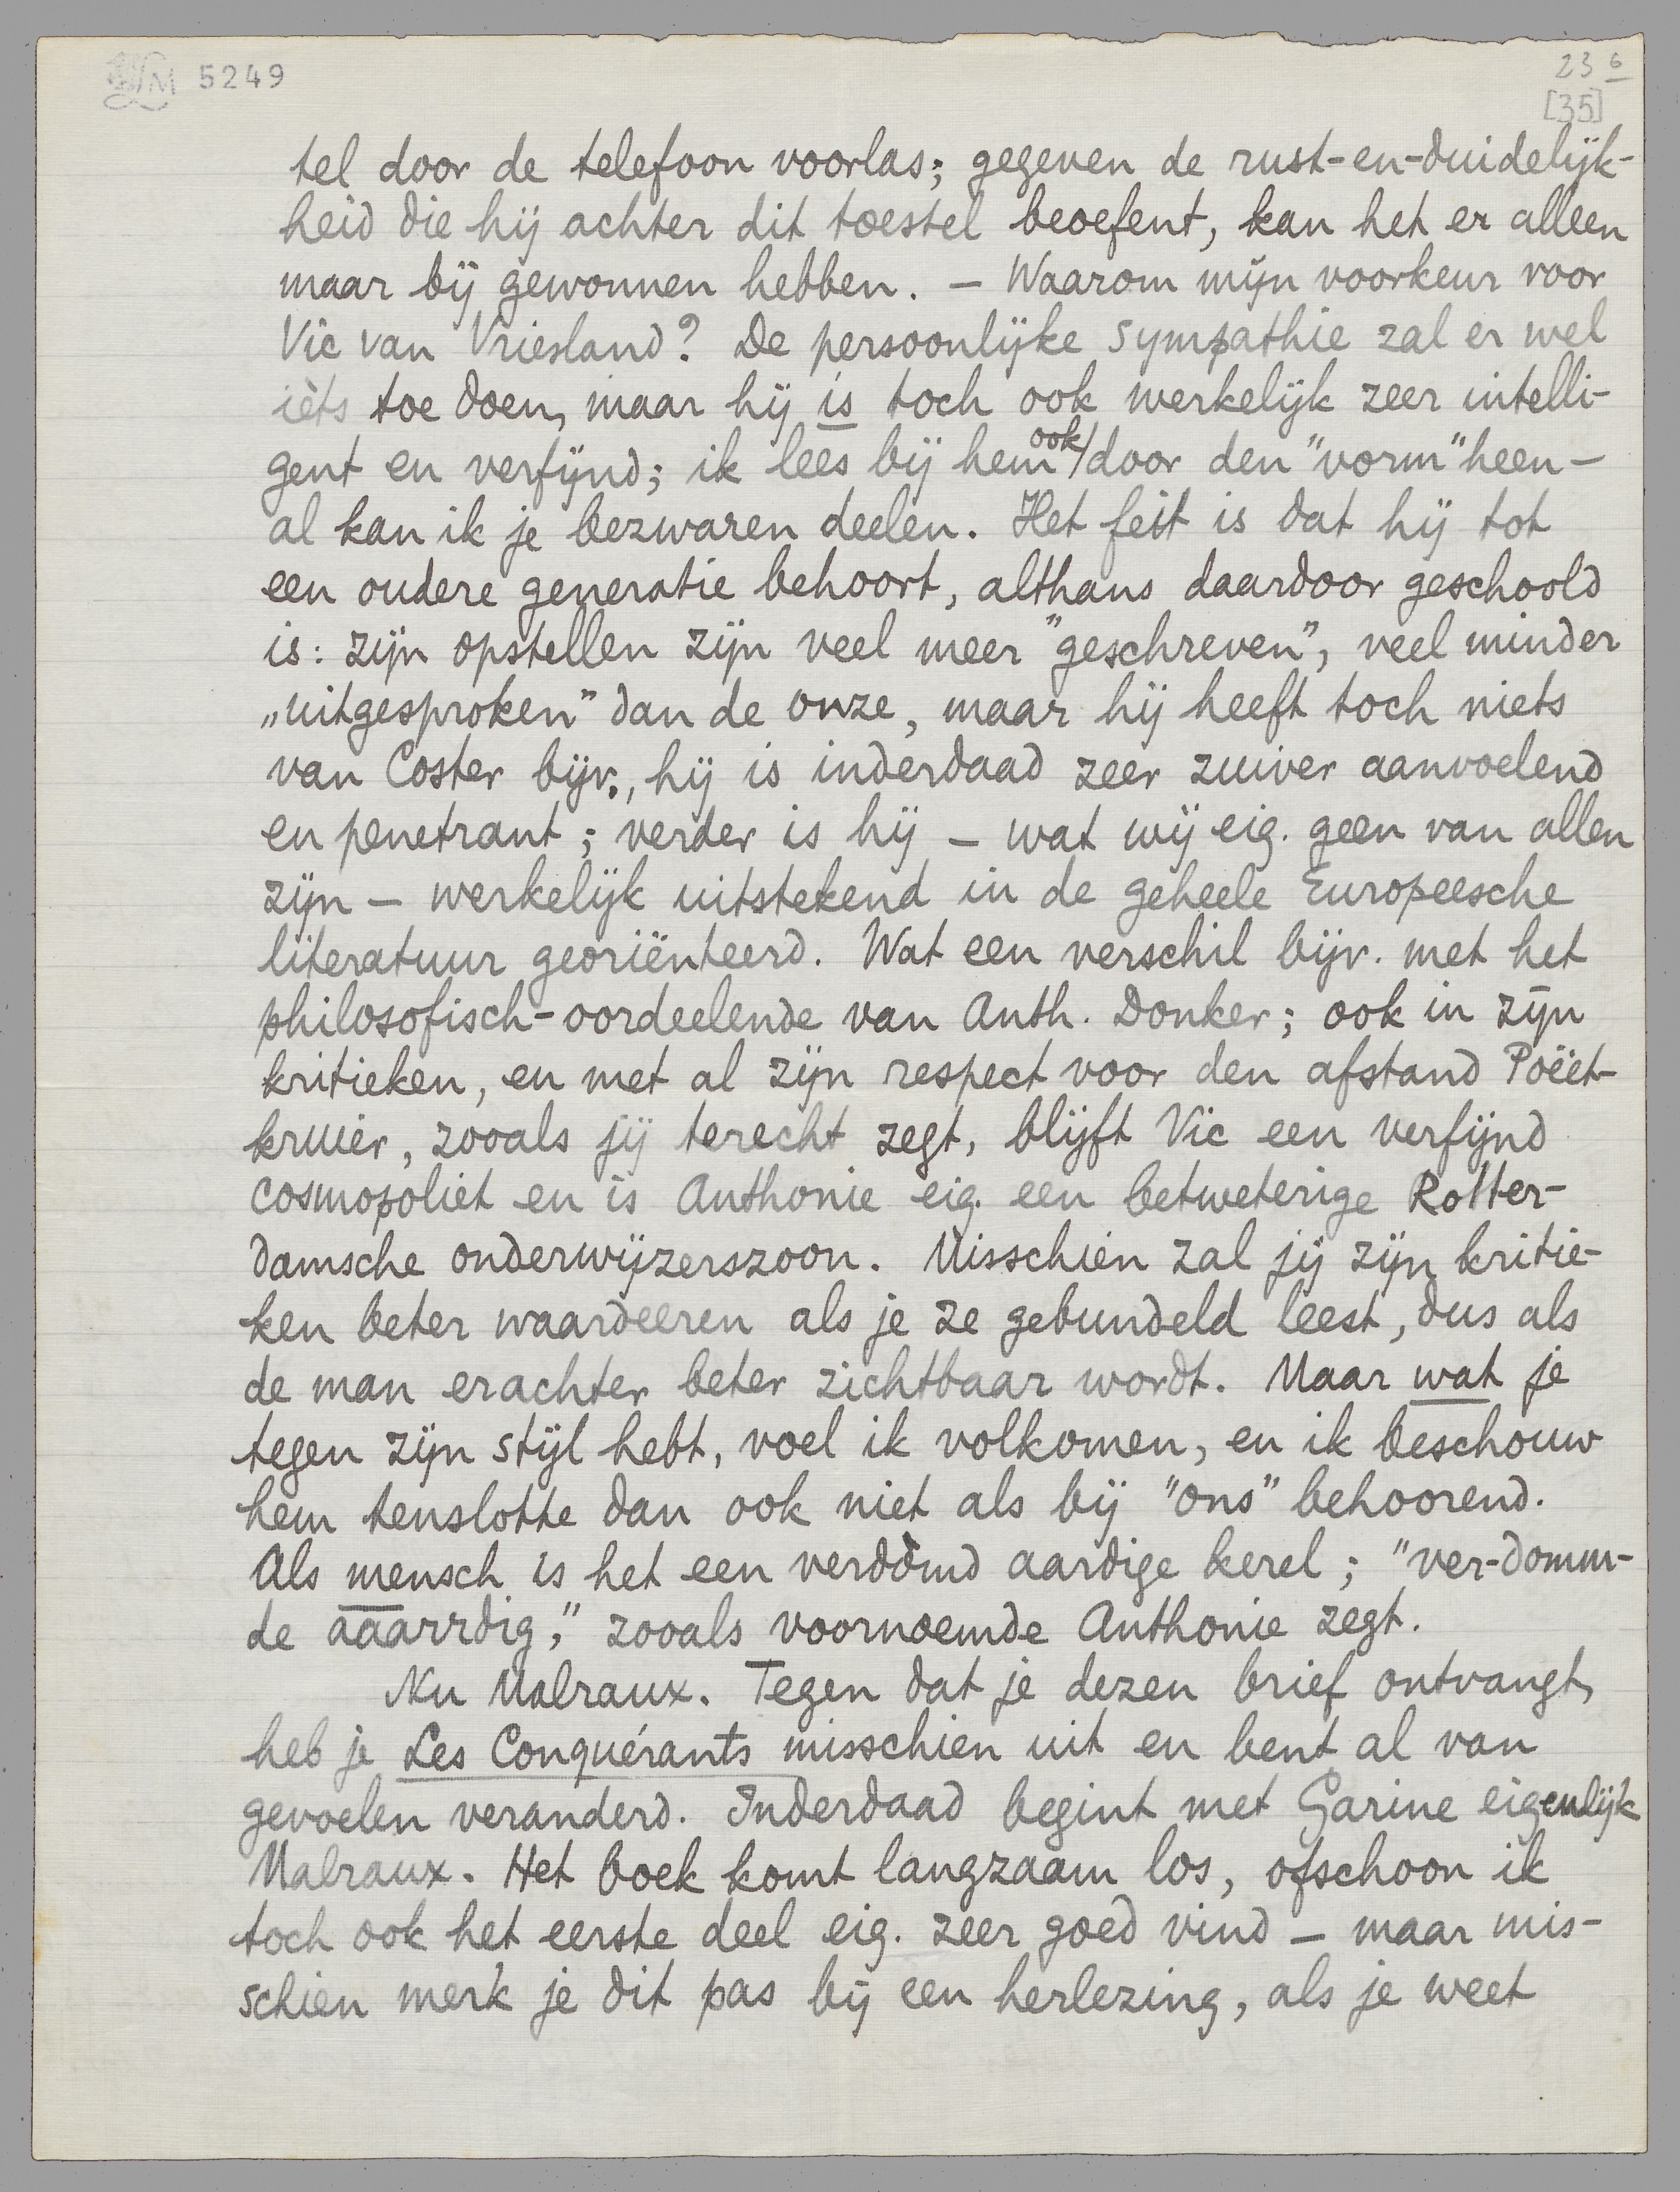 LM 5249
23 6
[35]
tel door de telefoon voorlas; gegeven de rust-en-duidelijk-
heid die hij achter dit toestel beoefent, kan het er alleen
maar bij gewonnen hebben. — Waarom mijn voorkeur voor
Vic van Vriesland? De persoonlijke sympathie zal er wel
ièts toe doen, maar hij is toch ook werkelijk zeer intelli-
gent en verfijnd; ik lees bij hem ook door den "vorm" heen —
al kan ik je bezwaren deelen. Het feit is dat hij tot
een oudere generatie behoort, althans daardoor geschoold
is: zijn opstellen zijn veel meer "geschreven", veel minder
„uitgesproken" dan de onze, maar hij heeft toch niets
van Coster bijv., hij is inderdaad zeer zuiver aanvoelend
en penetrant; verder is hij — wat wij eig. geen van allen
zijn — werkelijk uitstekend in de geheele Europeesche
literatuur georiënteerd. Wat een verschil bijv. met het
philosofisch-oordeelende van Anth. Donker; ook in zijn
kritieken, en met al zijn respect voor den afstand Poëet-
kruier, zooals jij terecht zegt, blijft Vic een verfijnd
cosmopoliet en is Anthonie eig. een betweterige Rotter-
damsche onderwijzerszoon. Misschien zal jij zijn kritie-
ken beter waardeeren als je ze gebundeld leest, dus als
de man erachter beter zichtbaar wordt. Maar wat je
tegen zijn stijl hebt, voel ik volkomen, en ik beschouw
hem tenslotte dan ook niet als bij "ons" behoorend.
Als mensch is het een verdòmd aardige kerel; "ver-domm-
de aaarrdig," zooals voornoemde Anthonie zegt.
Nu Malraux. Tegen dat je dezen brief ontvangt,
heb je Les Conquérants misschien uit en bent al van
gevoelen veranderd. Inderdaad begint met Garine eigenlijk
Malraux. Het boek komt langzaam los, ofschoon ik
toch ook het eerste deel eig. zeer goed vind — maar mis-
schien merk je dit pas bij een herlezing, als je weet